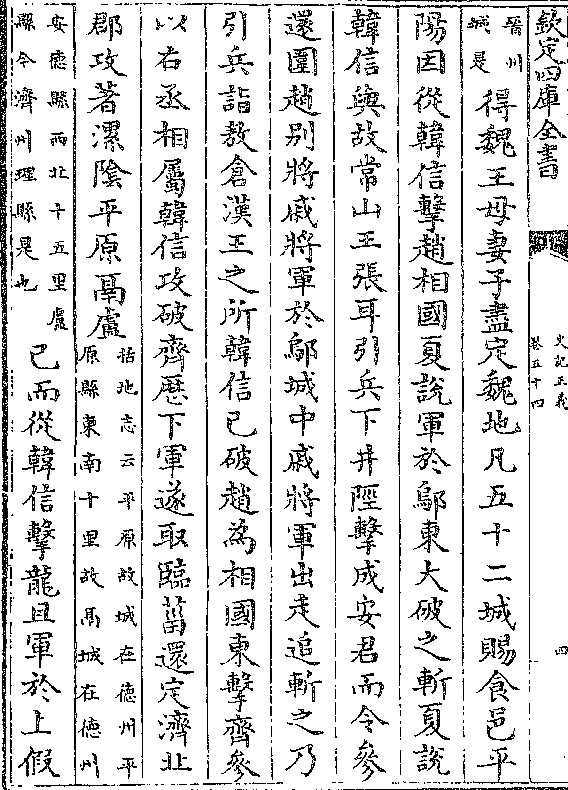 欽定四庫全書
史記正義
卷五十四
四
晉州城是
得魏王母妻子盡定魏地凡五十二城賜食邑平
陽因從韓信擊趙相國夏說軍於鄔東大破之斬夏說
韓信與故常山王張耳引兵下井陘擊成安君而令參
還圍趙別將戚將軍於鄔城中戚將軍出走追斬之乃
引兵詣敖倉漢王之所韓信已破趙為相國東擊齊參
以右丞相屬韓信攻破齊厯下軍遂取臨菑還定濟北
郡攻著漯陰平原鬲盧
括地志云平原故城在德州平
原縣東南十里故鬲城在德州
安德縣西北十五里盧
縣今濟州理縣是也
已而從韓信擊龍且軍於上假